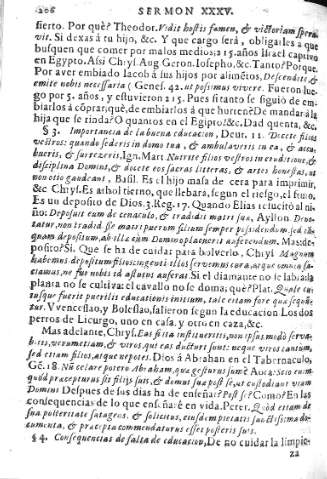 206 SERMON XXXV.
sierto. Por què? Theodor. Vidit hostis famen, & victoriam spera-
vit. Si dexas à tu hijo, &c. Y que cargo serà, obligarles a que
busquen que comer por malos medios: 215. años Israel captivo
en Egypto. Assi Chrys. Aug Geron. Iosepho, &c. Tanto? Porque.
Por aver embiado Iacob à sus hijos por alimētos, Descendite &
emite nobis necessaria (Genes. 42. ut possimus vivere. Fueron lue-
go por 5. años, y estuvieron 215. Pues si tanto se siguiò de em-
biarlos à còprar; què de embiarlos à que hurten? De mandar à la
hija que se rinda? O quantos en el Egipto! &c. Dad quenta, &c.
§ 3. Importancia de la buena educacion, Deut. 11. Docete filios
vestros: quando sederis in domo tua, & ambulaveris in via, & accu-
bueris, & surrexeris, Ign. Mart Nutrite filios vestros in eruditione, &
disciplina Domini, & docete eos sacras litteras, & artes honestas, ut
non otio gaudeant, Basil. Es el hijo masa de cera para imprimir,
&c Chrys. Es arbol tierno, que llebarà, segun el riego, el fruto.
Es un deposito de Dios. 3. Reg. 17. Quando Elias resucitò al ni-
ño: Deposuit eum de cenaculo, & tradidit matri suæ, Ayllon Devo-
tatur, non tradidisse matri puerum filium semper possidendum, sed
quam depositum, ab illa cum Domino placuerit auferendum. Mas: de-
posito? Si. Que se ha de cuidar para bolverlo. Chrys Magnum
habemus depositum filios: ingenti illos servemus cura,
ne fus nobis id astutus auferat. Si el diamante no se labra: la
planta no se cultiva: el cavallo no se doma; què? Plat. Quale
tusque fuerit puerilis educationis initium, tale etiam fore quæ sequun-
tur. Vvenceslao, y Boleslao, salieron segun la educacion Los dos
perros de Licurgo, uno en casa, y otro en caza, &c.
Mas adelante, Chrys. Eas si ita institueritis, non ipsi modò serva-
bis, verumetiam, & viros, qui eas ducturi sunt: neque viros tantum,
sed etiam filios, atque nepotes. Dios à Abrahan en el Tabernaculo,
Gē. 18. Nū celare potero Abraham, quæ gesturus sum? A oca: Scio enim
quòd præcepturus sit filijs suis, & domui suæ post se, ut custodiant viam
Domini Despues de sus dias ha de enseñar? Post se? Como? En las
consequencias de lo que enseñarè en vida. Peter. Quòd etiam de
sua posteritate satageres, & solicitus, eius
cumenta, & præcepta commendaturus esset posteris suis.
§ 4. Consequencias de falta de educacion, De no cuidar la limpie-
za